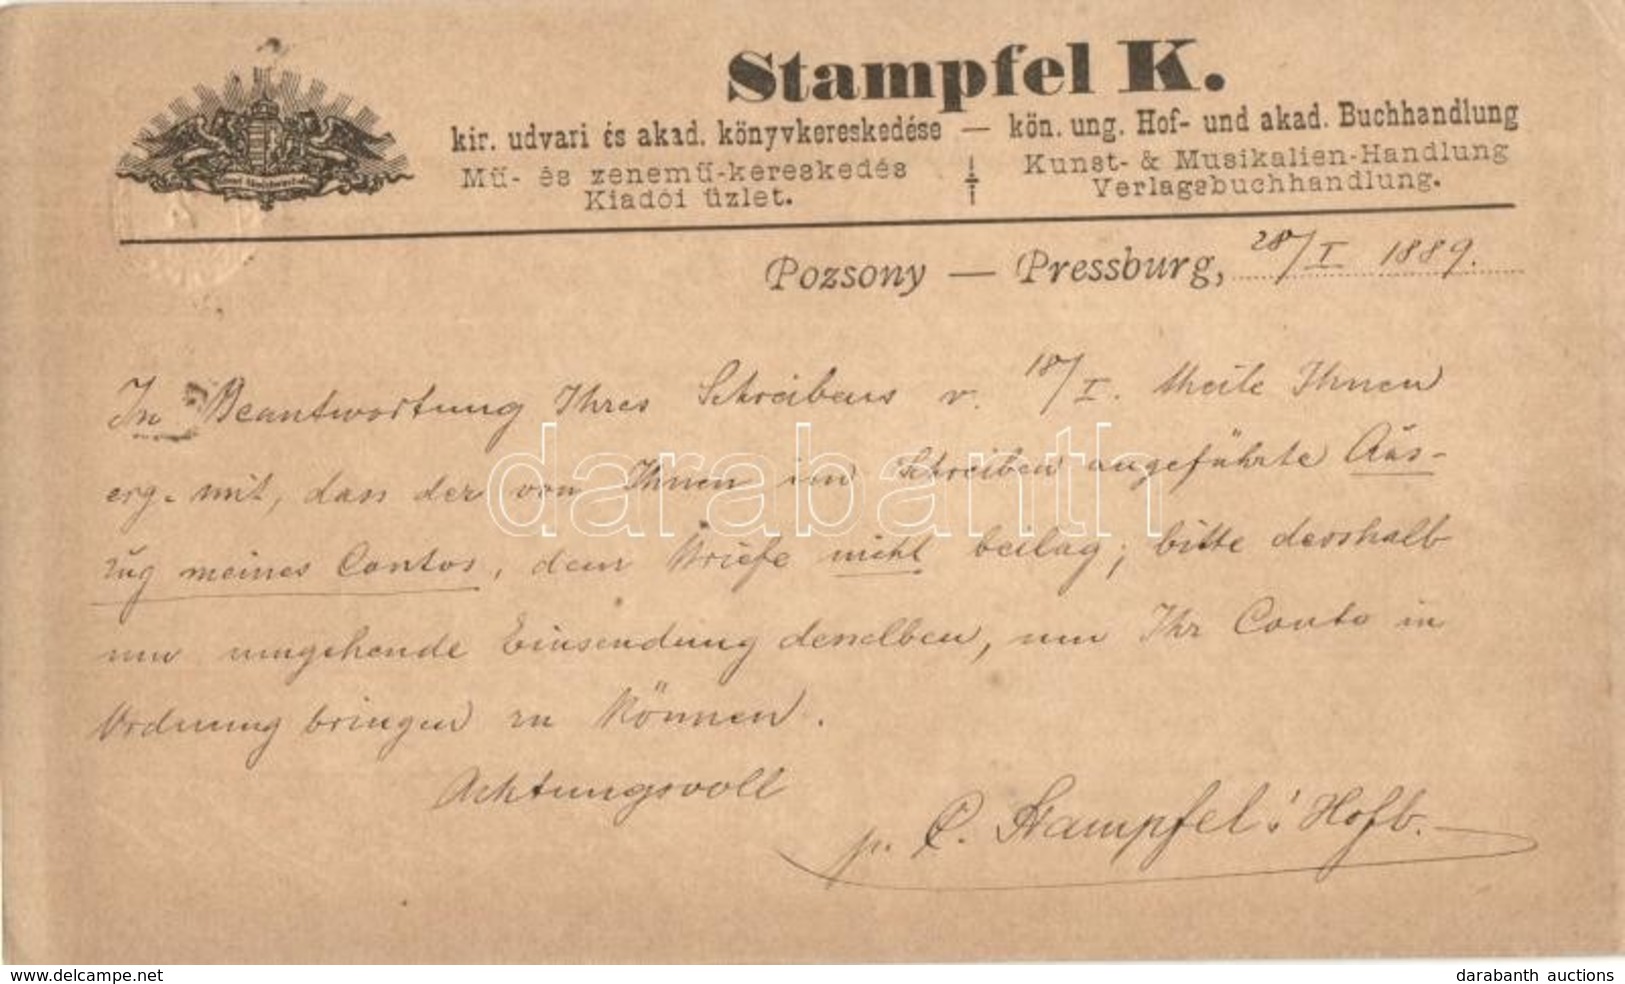 Stampfel K.
kir. udvari és akad. könyvkereskedése — kön. ung. Hof- und akad. Buchhandlung
Mű- és zenemű-kereskedés
Kiadói üzlet.
Kunst- & Musikalien-Handlung
Verlagsbuchhandlung.
Pozsony — Pressburg, 28/I 1889.
In Beantwortung Ihres Schreibens v. 18/I. theile Ihnen
erg. mit, dass der von Ihnen im Schreiben angeführte Aus-
zug meines Contos, dem Briefe nicht beilag; bitte desshalb
um umgehende Einsendung desselben, um Ihr Conto in
Ordnung bringen zu können.
Achtungsvoll
p. C. Stampfel's Hofb.
darabanth
www.delcampe.net
darabanth auctions